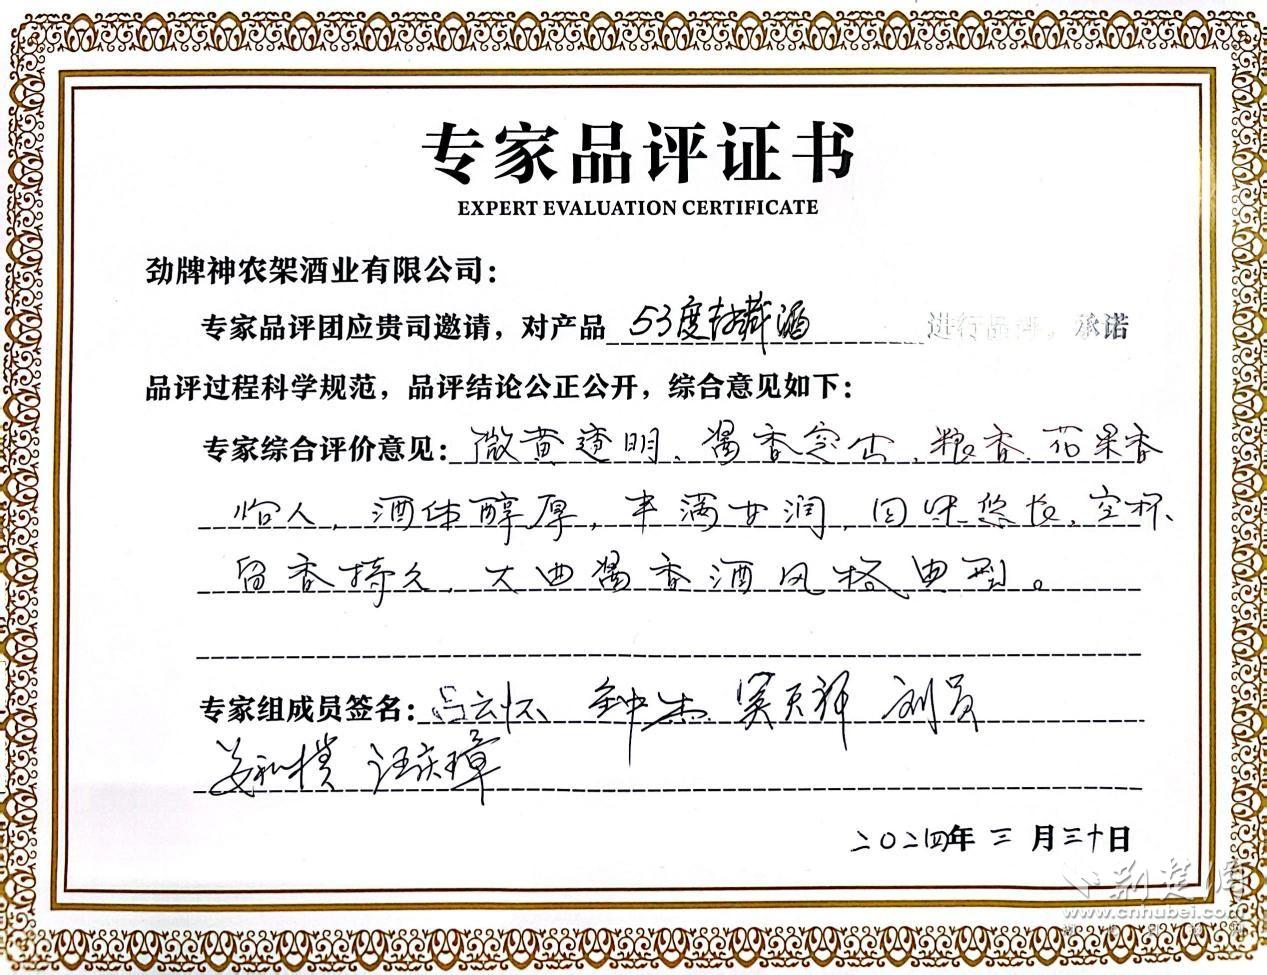 专家品评证书
EXPERT EVALUATION CERTIFICATE
劲牌神农架酒业有限公司：
专家品评团应贵司邀请，对产品 53度封藏酒 进行品评，承诺
品评过程科学规范，品评结论公正公开，综合意见如下：
专家综合评价意见：微黄透明、酱香突出、粮香、花果香
怡人，酒体醇厚，丰满 润，回味悠长，空杯
留香持久，大曲酱香酒风格典型。
专家组成员签名：吕云怀 钟杰 刘员
汪庆璋
二〇二四年三月三十日
荆楚网
www.cnhubei.com